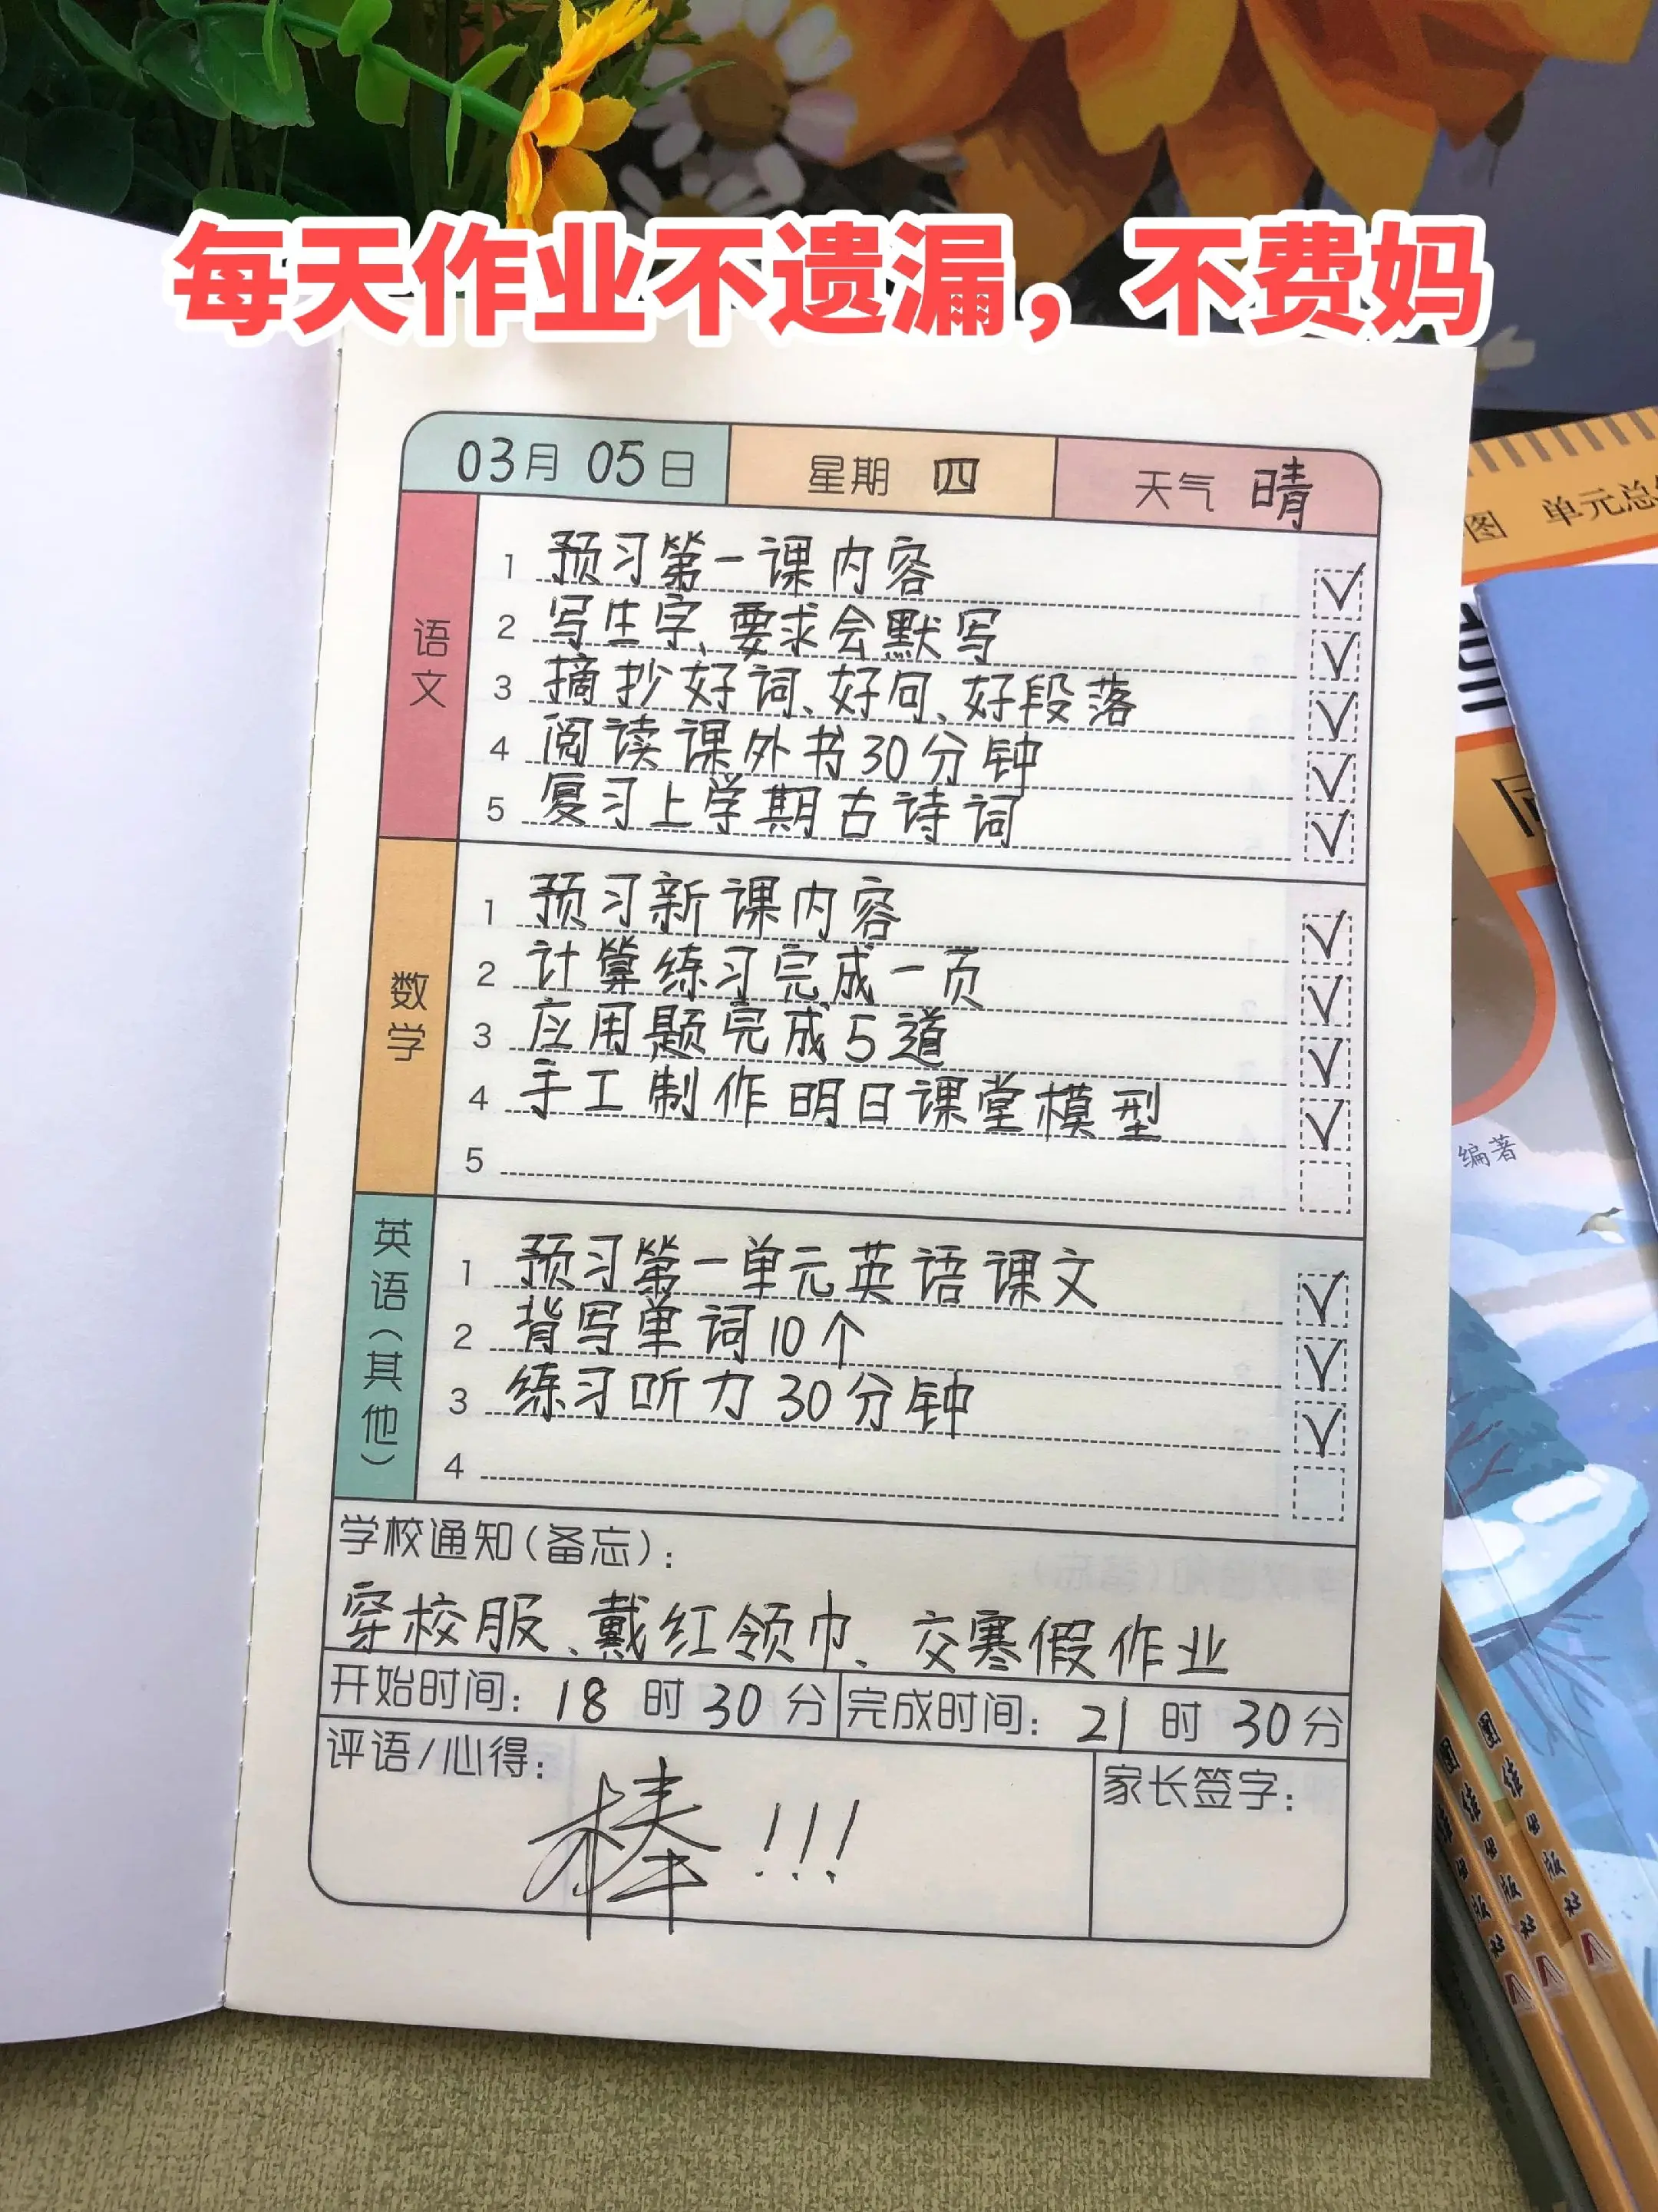 每天作业不遗漏，不费妈
03月 05日 星期 四 天气 晴
语文
1 预习第一课内容 ✓
2 写生字、要求会默写 ✓
3 摘抄好词、好句、好段落 ✓
4 阅读课外书30分钟 ✓
5 复习上学期古诗词 ✓
数学
1 预习新课内容 ✓
2 计算练习完成一页 ✓
3 应用题完成5道 ✓
4 手工制作明日课堂模型 ✓
5
英语(其他)
1 预习第一单元英语课文 ✓
2 背写单词10个 ✓
3 练习听力30分钟 ✓
4
学校通知(备忘)：
穿校服、戴红领巾、交寒假作业
开始时间：18时30分 完成时间：21时30分
评语/心得：
棒!!!
家长签字：
图 单元总
编著
作出版社
团作出版社
团作出版社